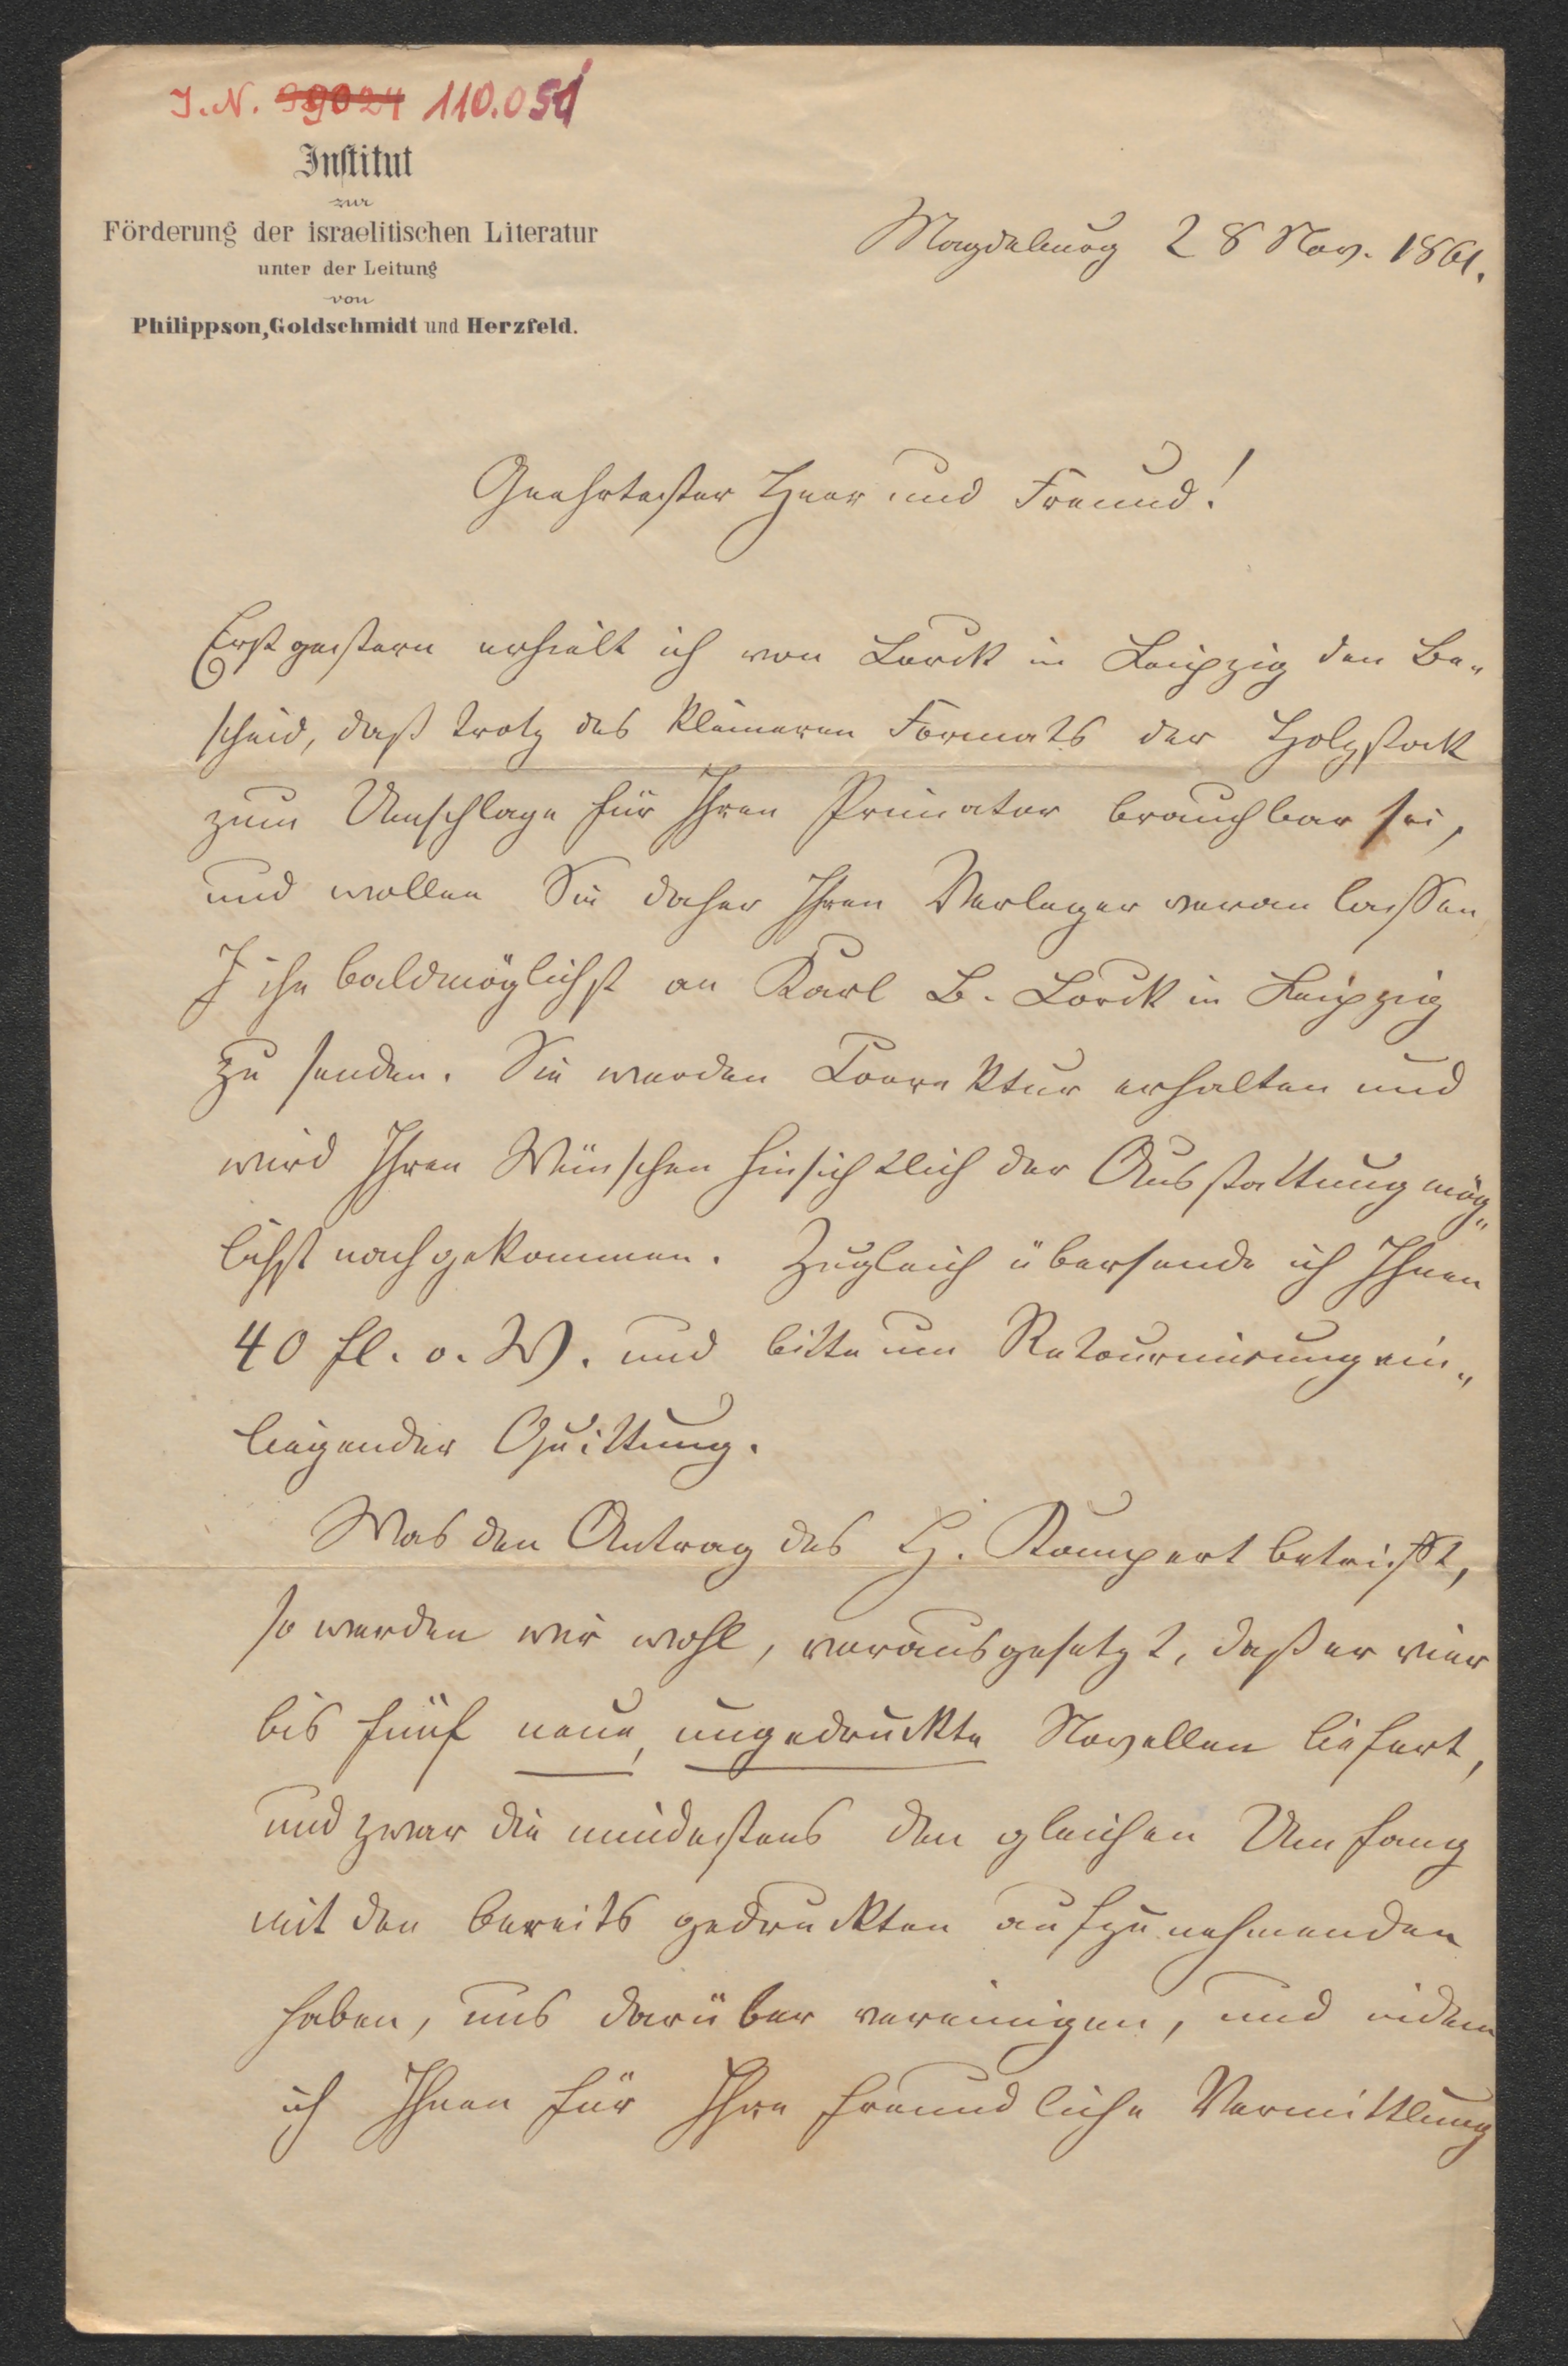 J. N. 99024 110.051
Institut
zur
Förderung der israelitischen Literatur
unter der Leitung
von
Philippson, Goldschmidt und Herzfeld.
Magdeburg 28 Nov. 1861.
Geehrtester Herr und Freund!
Erst gestern erhielt ich von Lorck in Leipzig den Be-
scheid, daß trotz des kleineren Formats der Holzstock
zum Umschlage für Ihren Primator brauchbar sei,
und wollen Sie daher Ihren Verleger veranlassen
ihn baldmöglichst an Karl B. Lorck in Leipzig
zu senden. Sie werden Correktur erhalten und
wird Ihren Wünschen hinsichtlich der Ausstattung mög-
lichst nachgekommen. Zugleich übersende ich Ihnen
40 fl. o. W. und bitte um Retournirung ein-
liegender Quittung.
Was den Antrag des H. Kompert betrifft,
so werden wir wohl, vorausgesetzt, daß er vier
bis fünf neue, ungedruckte Novellen liefert,
und zwar die mindestens den gleichen Umfang
mit den bereits gedruckten aufzunehmenden
haben, uns darüber vereinigen, und indem
ich Ihnen für Ihre freundliche Vermittlung